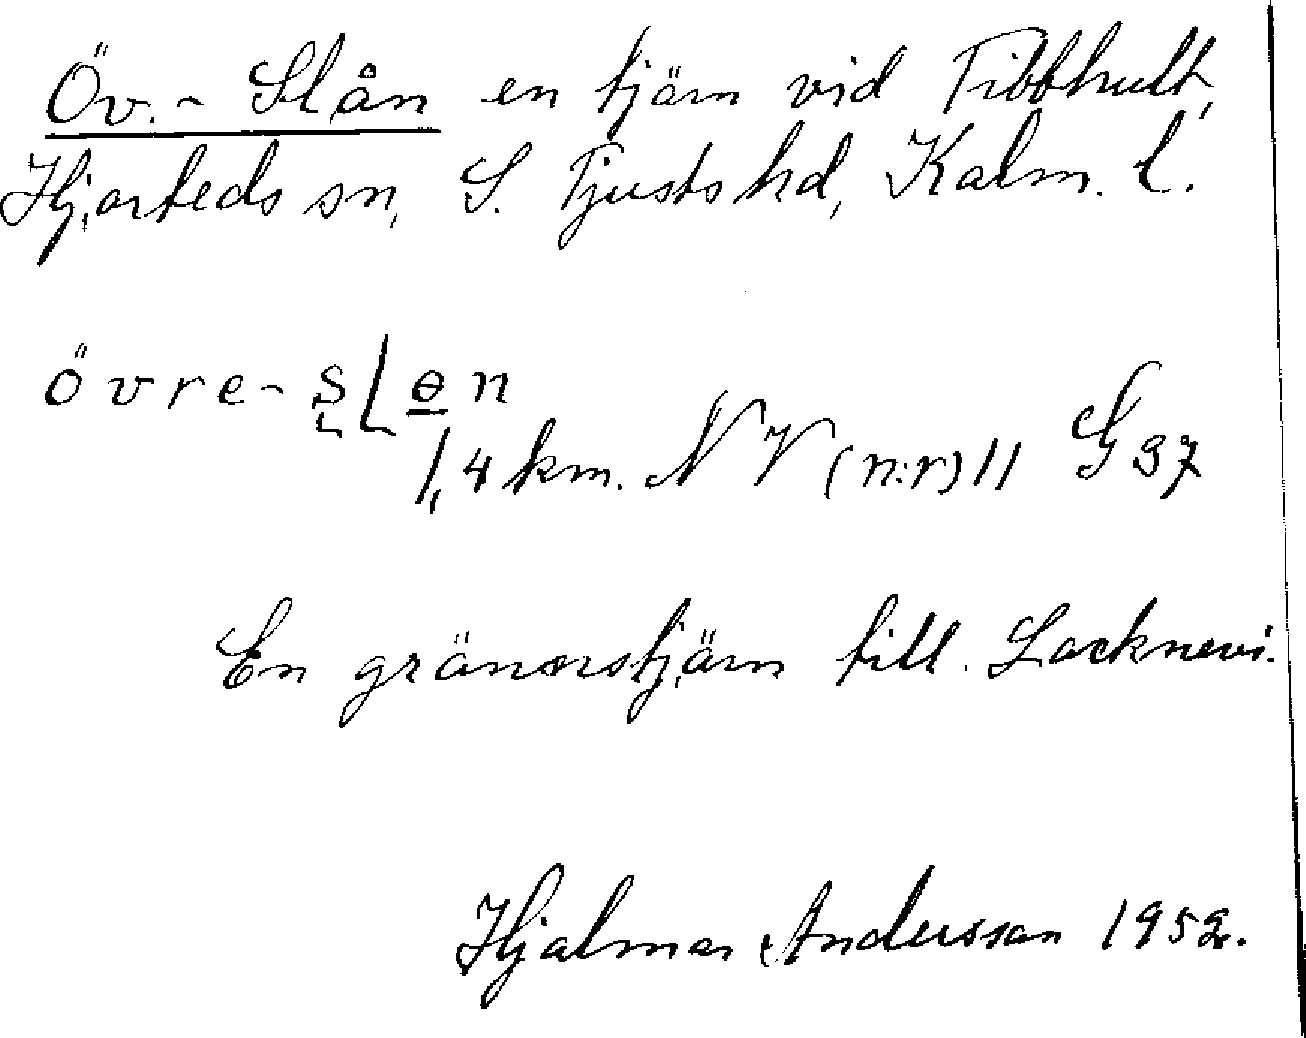 Öv.- Slån en tjärn vid Tibbhult,
Hjorteds sn, S. Tjusts hd, Kalm. l.
övre-sLɵn
1,4 km. NV (n:r) 11 G 37
En gränstjärn till Locknevi.
Hjalmar Andersson 1952.